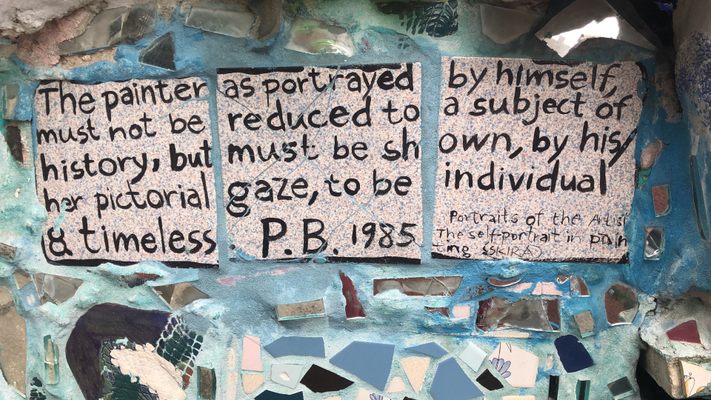 The painter as portrayed by himself,
must not be reduced to a subject of
history, but must be shown, by his/
her pictorial gaze, to be individual
& timeless. P.B. 1985
Portraits of the Artist
The self-portrait in pain
ting SSKIRA